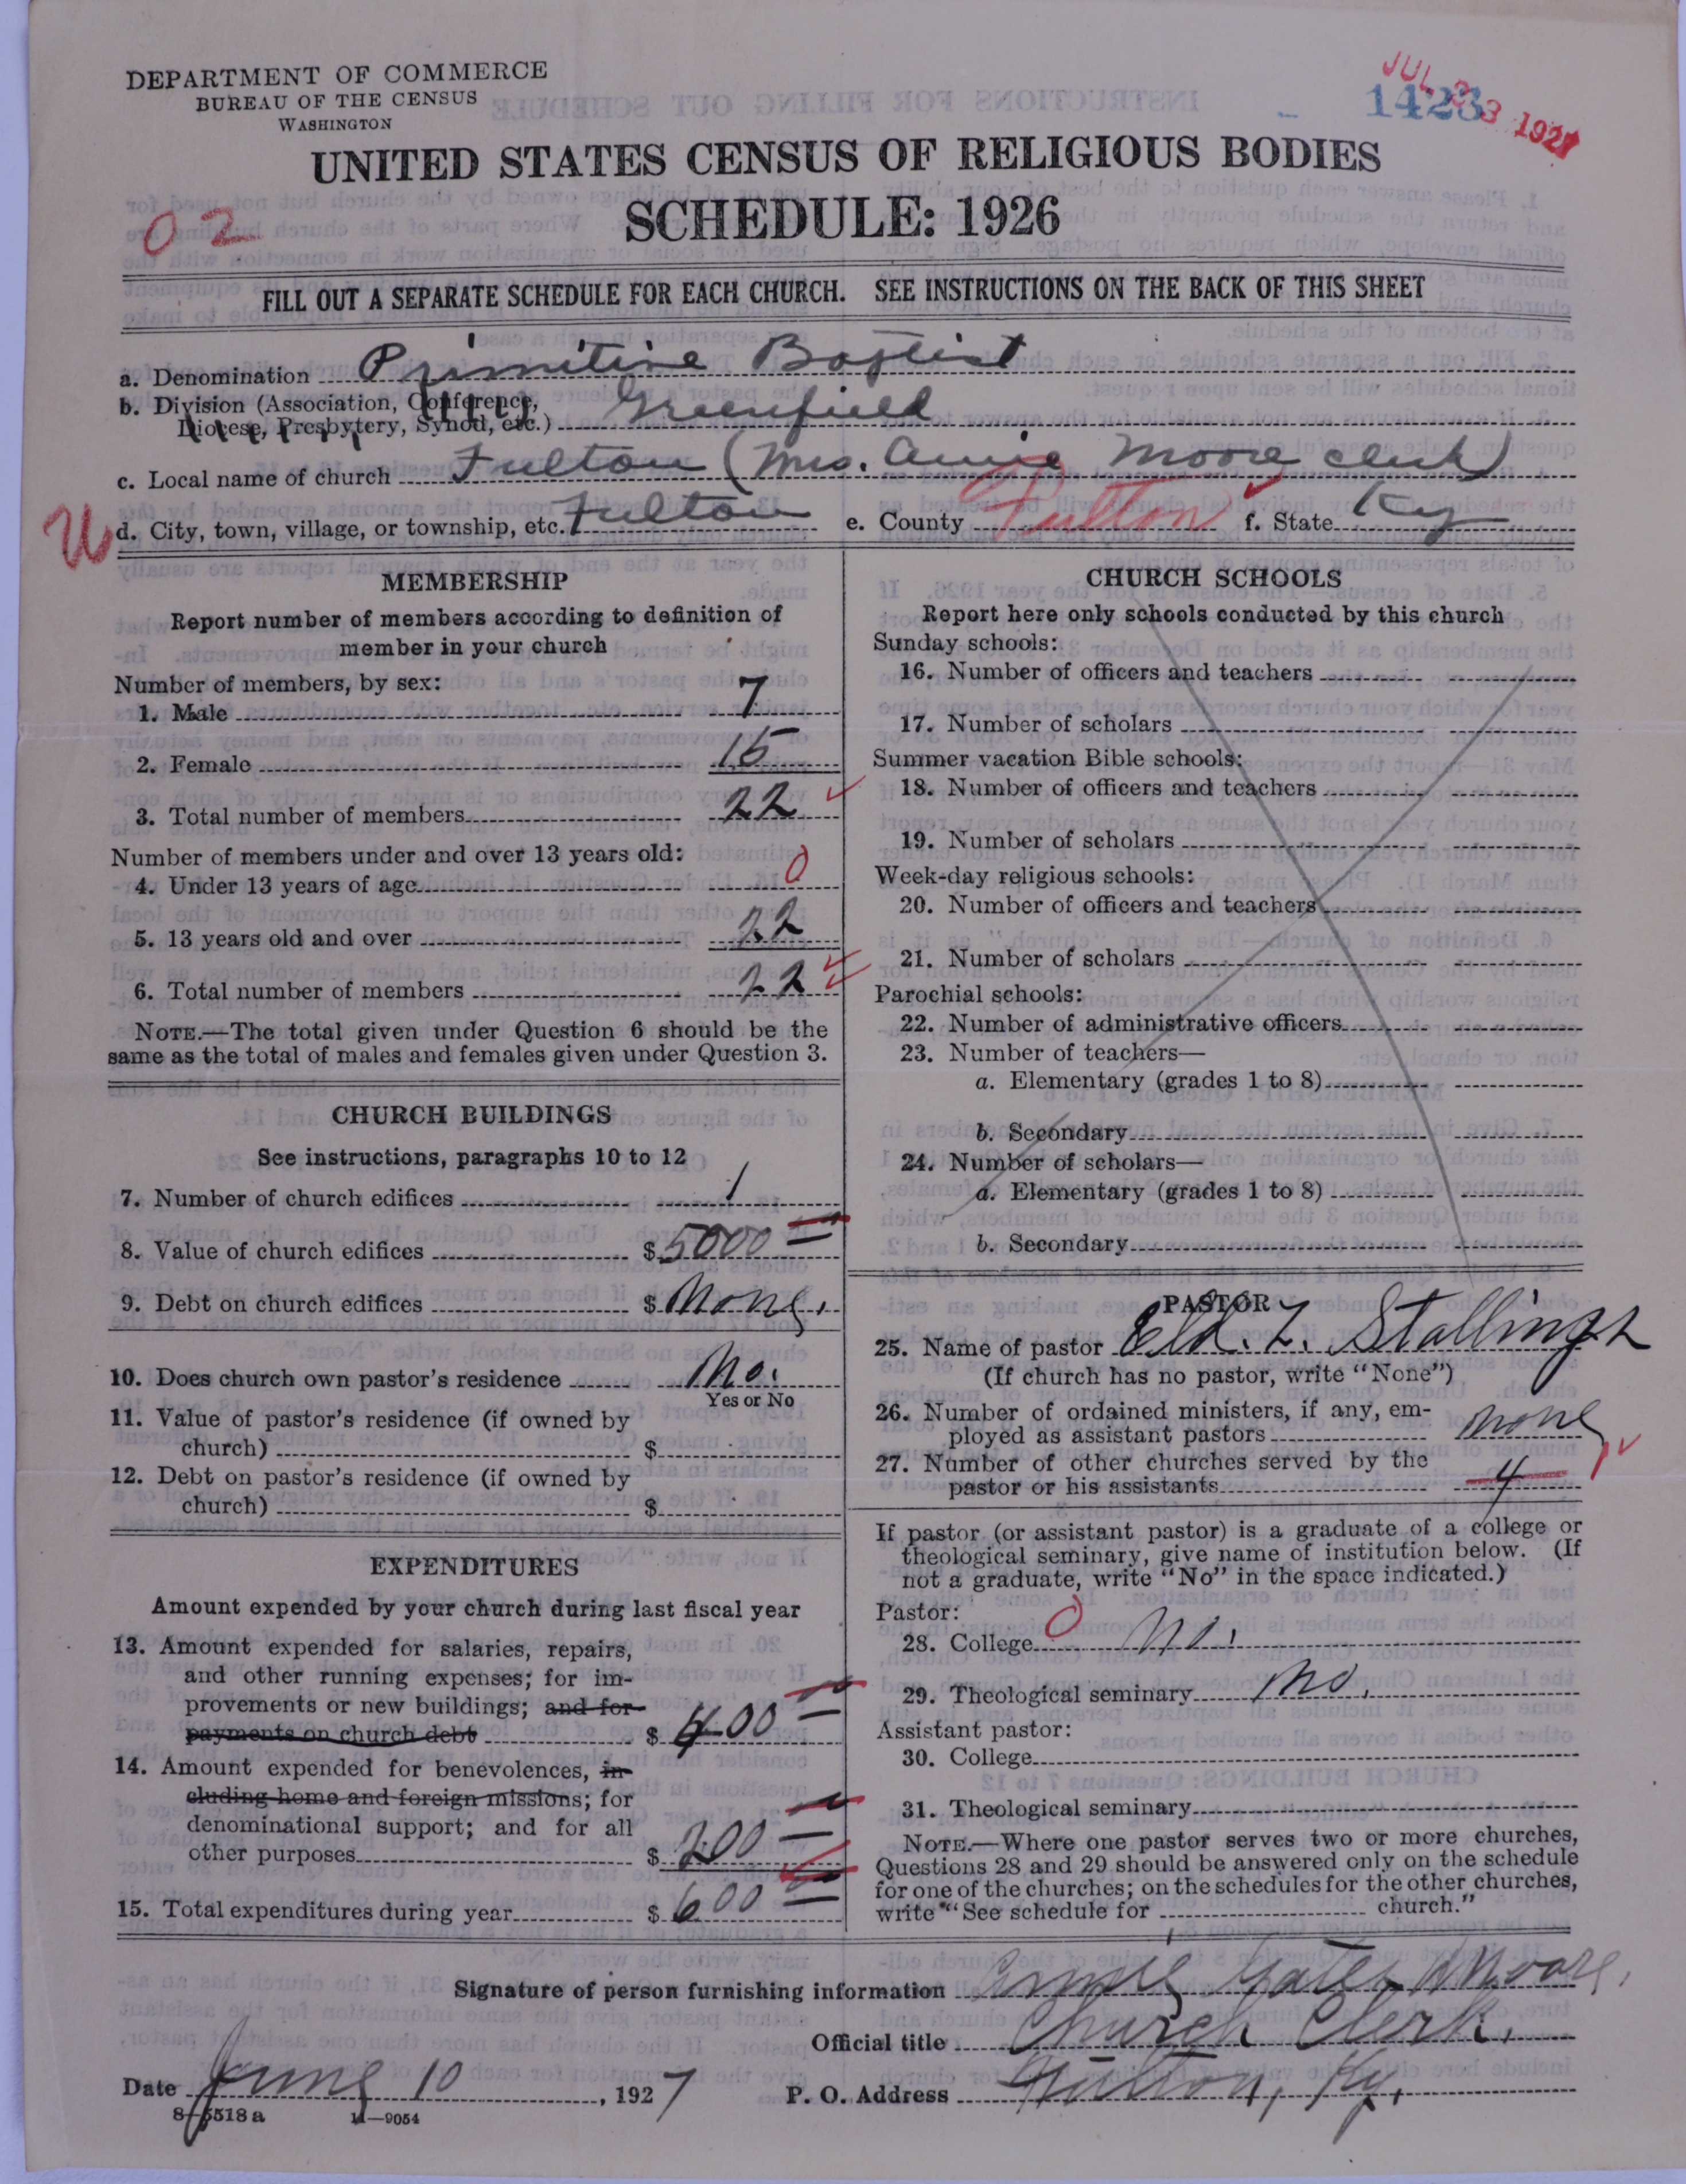 DEPARTMENT OF COMMERCE
BUREAU OF THE CENSUS
WASHINGTON
1423
JUL 23 1927
UNITED STATES CENSUS OF RELIGIOUS BODIES
SCHEDULE: 1926
02
FILL OUT A SEPARATE SCHEDULE FOR EACH CHURCH. SEE INSTRUCTIONS ON THE BACK OF THIS SHEET
a. Denomination Primitive Baptist
b. Division (Association, Conference, Diocese, Presbytery, Synod, etc.) Greenfield
c. Local name of church Fulton (Mrs. Annie Moore clerk)
d. City, town, village, or township, etc. Fulton e. County Fulton f. State Ky
MEMBERSHIP
Report number of members according to definition of
member in your church
Number of members, by sex:
1. Male 7
2. Female 15
3. Total number of members 22
Number of members under and over 13 years old:
4. Under 13 years of age 0
5. 13 years old and over 22
6. Total number of members 22
NOTE.—The total given under Question 6 should be the
same as the total of males and females given under Question 3.
CHURCH BUILDINGS
See instructions, paragraphs 10 to 12
7. Number of church edifices 1
8. Value of church edifices $5000
9. Debt on church edifices $ None.
10. Does church own pastor's residence No.
Yes or No
11. Value of pastor's residence (if owned by
church) $
12. Debt on pastor's residence (if owned by
church) $
EXPENDITURES
Amount expended by your church during last fiscal year
13. Amount expended for salaries, repairs,
and other running expenses; for im-
provements or new buildings; and for
payments on church debt $ 400
14. Amount expended for benevolences, in-
cluding home and foreign missions; for
denominational support; and for all
other purposes $ 200
15. Total expenditures during year $ 600
CHURCH SCHOOLS
Report here only schools conducted by this church
Sunday schools:
16. Number of officers and teachers
17. Number of scholars
Summer vacation Bible schools:
18. Number of officers and teachers
19. Number of scholars
Week-day religious schools:
20. Number of officers and teachers
21. Number of scholars
Parochial schools:
22. Number of administrative officers
23. Number of teachers—
a. Elementary (grades 1 to 8)
b. Secondary
24. Number of scholars—
a. Elementary (grades 1 to 8)
b. Secondary
PASTOR
25. Name of pastor Eld. Z. Stallings
(If church has no pastor, write "None")
26. Number of ordained ministers, if any, em-
ployed as assistant pastors None
27. Number of other churches served by the
pastor or his assistants 4
If pastor (or assistant pastor) is a graduate of a college or
theological seminary, give name of institution below. (If
not a graduate, write "No" in the space indicated.)
Pastor: 0
28. College No.
29. Theological seminary No.
Assistant pastor:
30. College
31. Theological seminary
NOTE.—Where one pastor serves two or more churches,
Questions 28 and 29 should be answered only on the schedule
for one of the churches; on the schedules for the other churches,
write "See schedule for church."
Signature of person furnishing information Annie Yates Moore,
Official title Church Clerk,
Date June 10, 1927 P. O. Address Fulton, Ky,
8—5518 a 11—9054